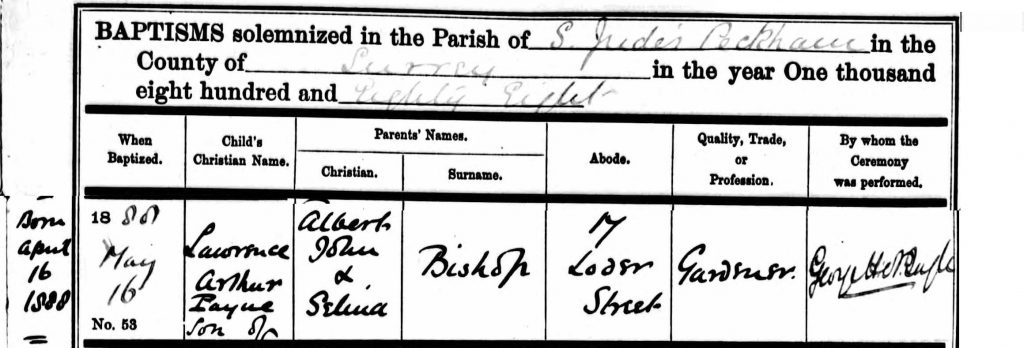 BAPTISMS solemnized in the Parish of S. Jude's Peckham in the
County of Surrey in the year One thousand
eight hundred and Eighty Eight
When
Baptized.
Child's
Christian Name.
Parents' Names.
Christian.
Surname.
Abode.
Quality, Trade,
or
Profession.
By whom the
Ceremony
was performed.
Born
April
16
1888
1888
May
16
No. 53
Lawrence
Arthur
Payne
Son of
Albert
John
&
Selina
Bishop
Loder
Street
Gardener.
George